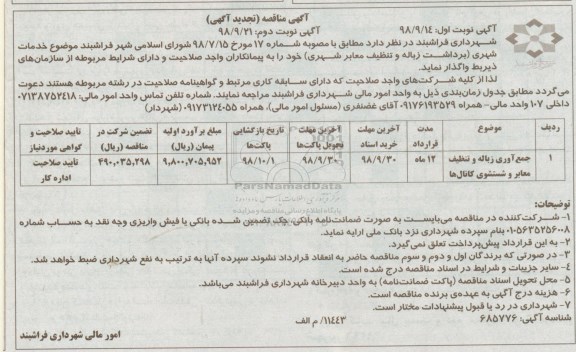 آگهی مناقصه (تجدید آگهی)
آگهی نوبت اول: ۹۸/۹/۱۴ آگهی نوبت دوم: ۹۸/۹/۲۱
شهرداری فراشبند در نظر دارد مطابق با مصوبه شماره ۱۷ مورخ ۹۸/۷/۱۵ شورای اسلامی شهر فراشبند موضوع خدمات
شهری (برداشت زباله و تنظیف معابر شهری) خود را به پیمانکاران واجد صلاحیت و دارای شرایط مربوطه از سازمان‌های
ذیربط واگذار نماید.
لذا از کلیه شرکت‌های واجد صلاحیت که دارای سابقه کاری مرتبط و گواهینامه صلاحیت در رشته مربوطه هستند دعوت
می‌گردد مطابق جدول زمان‌بندی ذیل به واحد امور مالی شهرداری فراشبند مراجعه نمایند. شماره تلفن تماس واحد امور مالی: ۰۷۱۳۸۷۵۲۴۱۸
داخلی ۱۰۷ واحد مالی- همراه ۰۹۱۷۶۱۹۳۵۳۹ آقای غضنفری (مسئول امور مالی)، همراه ۰۹۱۷۳۱۲۴۰۵۵ (شهردار)
ردیف موضوع مدت قرارداد آخرین مهلت خرید اسناد آخرین مهلت تحویل پاکت‌ها تاریخ بازگشایی پاکت‌ها مبلغ برآورد اولیه پیمان (ریال) تضمین شرکت در مناقصه (ریال) تأیید صلاحیت و گواهی موردنیاز
۱ جمع‌آوری زباله و تنظیف معابر و شستشوی کانال‌ها ۱۲ ماه ۹۸/۹/۳۰ ۹۸/۹/۳۰ ۹۸/۱۰/۱ ۹,۸۰۰,۷۰۵,۹۵۲ ۴۹۰,۰۳۵,۲۹۸ تأیید صلاحیت اداره کار
ParsNamadData
توضیحات:
۱- شرکت‌کننده در مناقصه می‌بایست به صورت ضمانت‌نامه بانکی، چک تضمین شده بانکی یا فیش واریزی وجه نقد به حساب شماره
۰۱۰۵۶۳۵۲۵۶۰۰۸ بنام سپرده شهرداری نزد بانک ملی ارایه نماید.
۲- به این قرارداد پیش‌پرداخت تعلق نمی‌گیرد.
۳- در صورتی که برندگان اول و دوم و سوم مناقصه حاضر به انعقاد قرارداد نشوند سپرده آنها به ترتیب به نفع شهرداری ضبط خواهد شد.
۴- سایر جزییات و شرایط در اسناد مناقصه درج شده است.
۵- محل تحویل اسناد مناقصه (پاکت ضمانت‌نامه) به واحد دبیرخانه شهرداری فراشبند می‌باشد.
۶- هزینه درج آگهی به عهده‌ی برنده مناقصه است.
۷- شهرداری در رد یا قبول پیشنهادات مختار است.
شناسه آگهی: ۶۸۵۷۷۶ ۱۱۴۴۳/ م الف
امور مالی شهرداری فراشبند